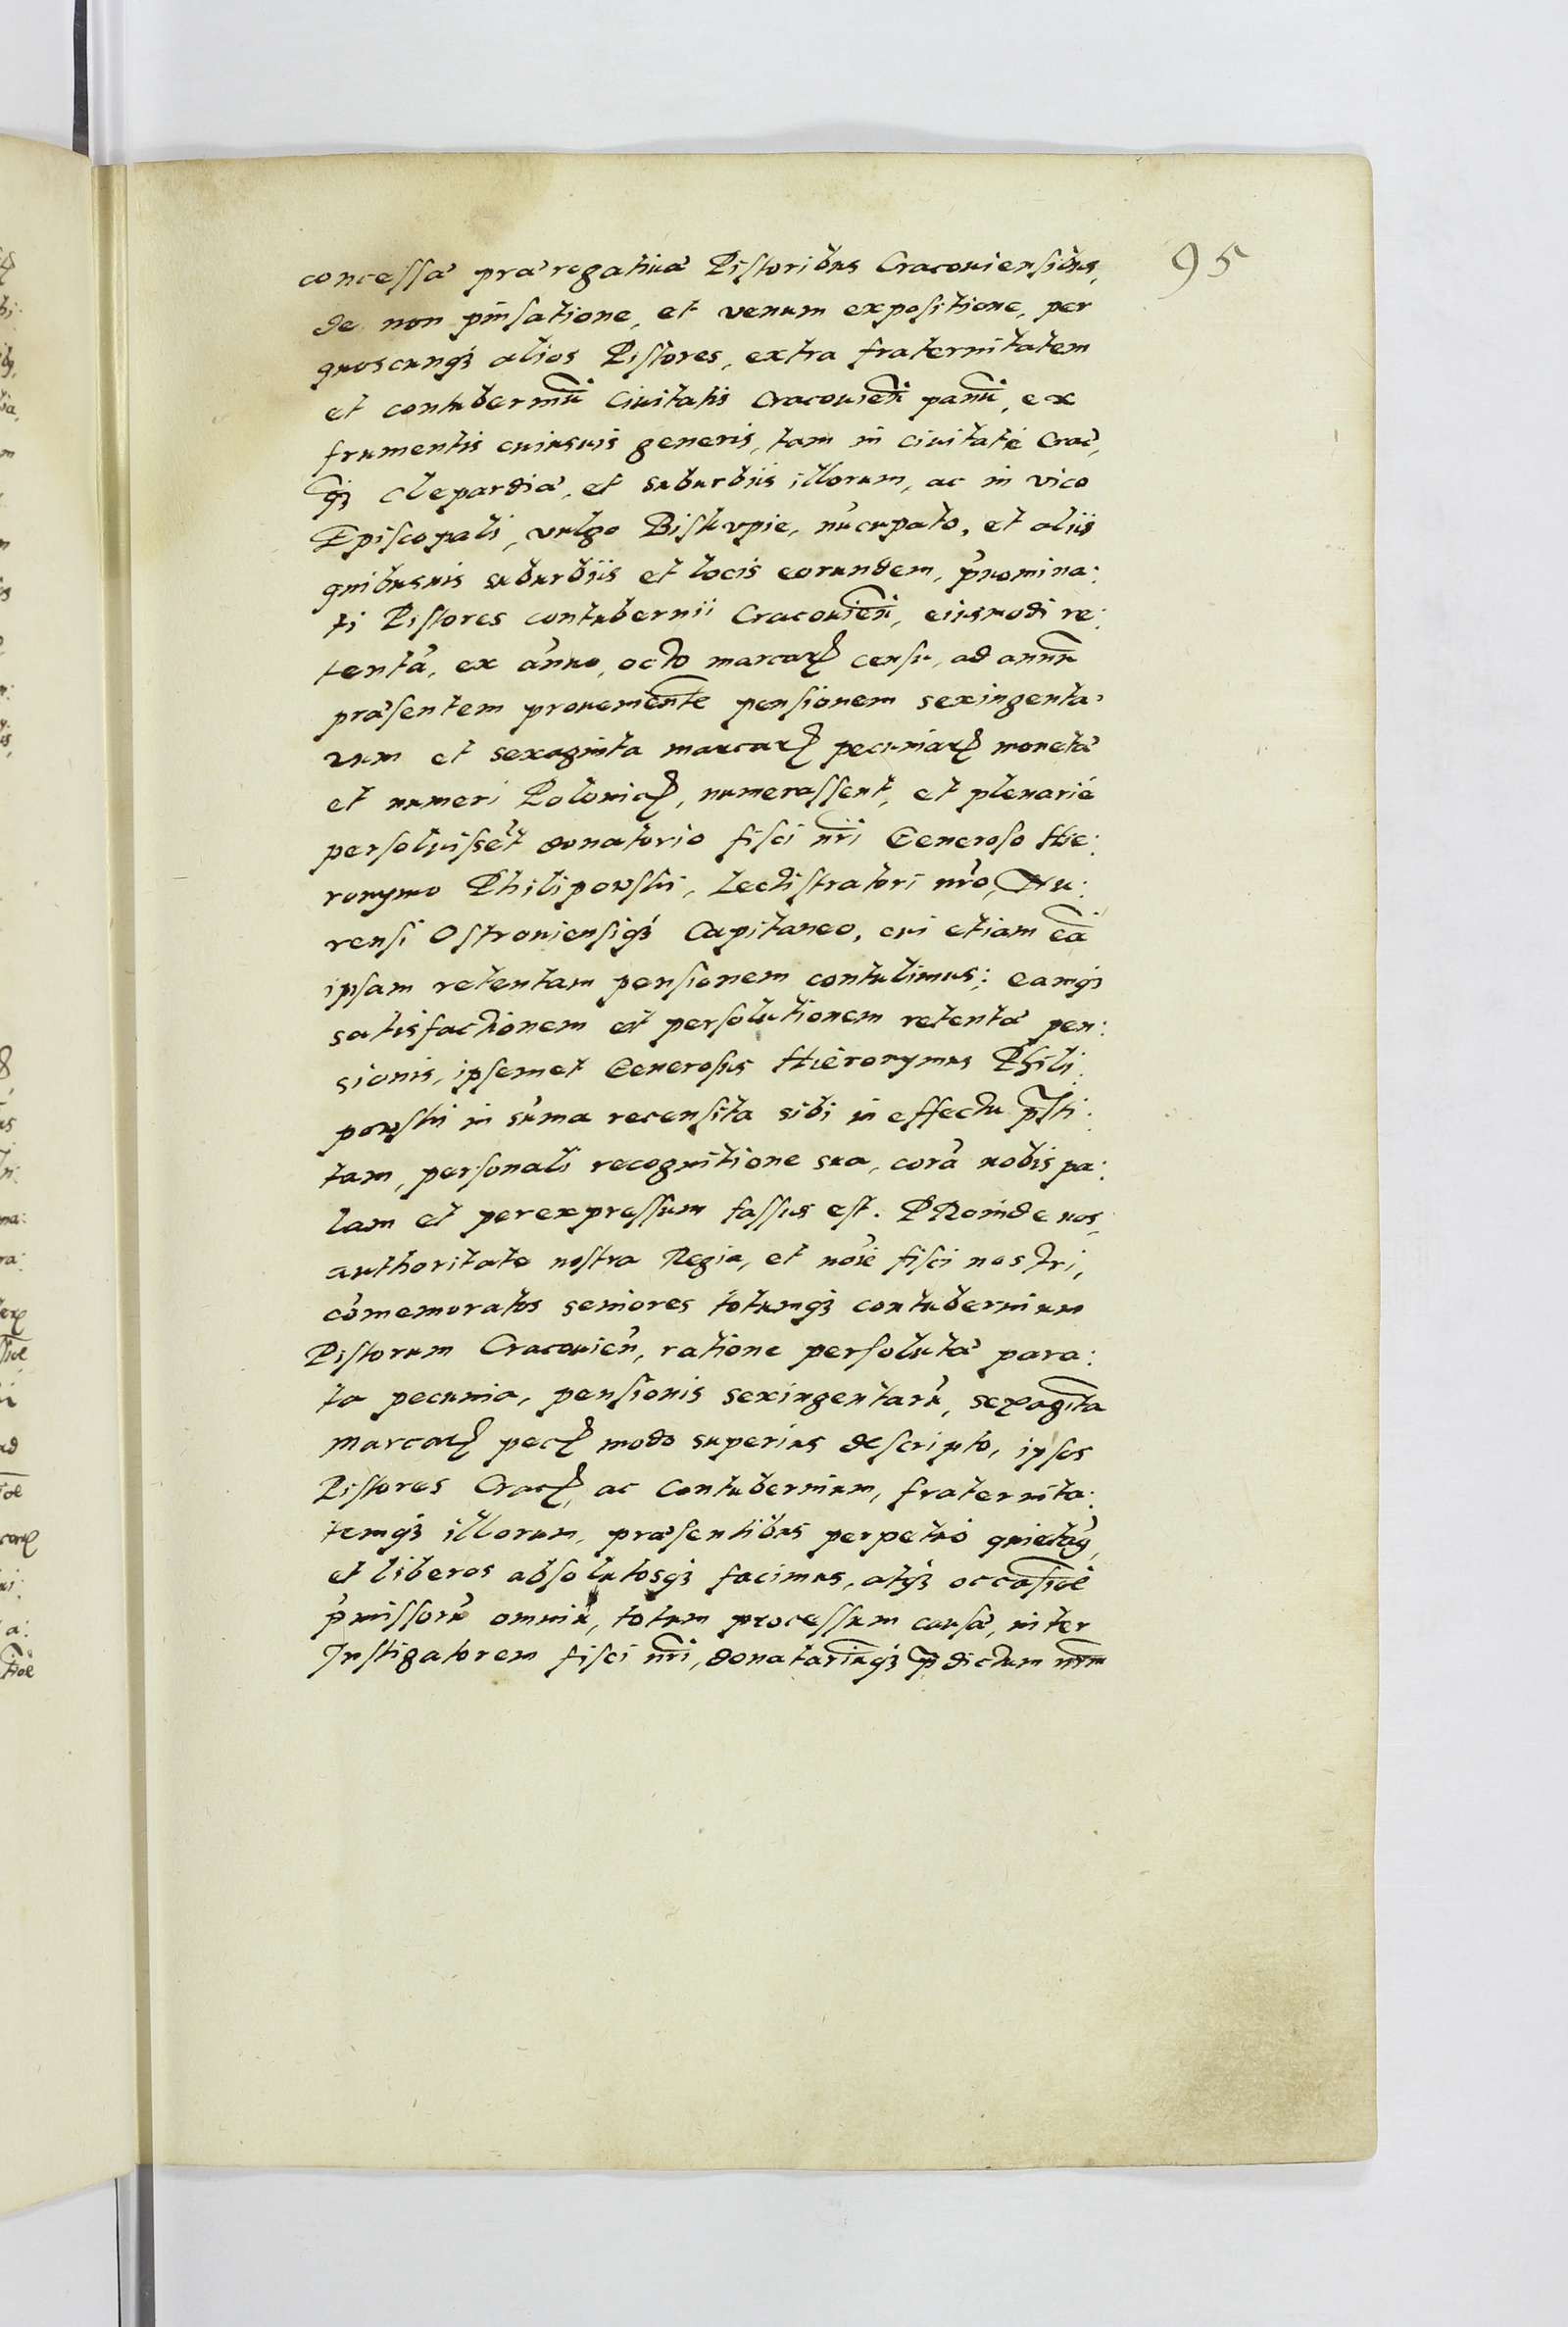 95
concessa prærogatiua Pistoribus Cracouiensibus,
de non pinsatione, et venum expositione, per
quoscunq3 alios Pistores, extra fraternitatem
et contuberniũ Ciuitatis Cracouieñ panũ, ex
frumentis cuiusuis generis, tam in ciuitate Crac̃,
q3 Clepardia, et suburbiis illorum, ac in vico
Episcopali, vulgo Biskvpie, nũcupato, et aliis
quibusuis suburbiis et locis eorundem, p̃nomina:
ti Pistores contubernii Cracouieñ, eiusmodi re:
tenta, ex ãnuo, octo marcarꝝ censu, ad annũ
præsentem proueniente pensionem sexingenta:
rum et sexaginta marcarꝝ pecuniarꝝ monetæ
et numeri Polonicꝝ, numerassent, et plenariè
persoluissẽt donatorio fisci nr̃i Generoso Hie:
ronymo Philipowski, Lectistratori nr̃o, Nu:
rensi Ostrouiensiq3 Capitaneo, cui etiam eã
ipsam retentam pensionem contulimus; eamq3
satisfactionem et persolutionem retentæ pen:
sionis, ipsemet Generosus Hieronymus Phili:
powski in sũma recensita sibi in effectu p̃sti:
tam, personali recognitione sua, corã nobis pa:
lam et perexpressum fassus est. PRoinde nos,
authoritate nostra Regia, et nõie fisci nostri,
cõmemoratos seniores totumq3 contubernium
Pistorum Cracouieñ, ratione persolutæ para:
ta pecunia, pensionis sexingentarũ, sexagĩta
marcarꝝ pecꝝ modo superius descripto, ipsos
Pistores Cracꝝ, ac Contubernium, fraternita:
temq3 illorum, præsentibus perpetuò quietos,
et liberos absolutosq3 facimus, atq3 occasiõe
p̃missorũ omniũ, totum processum causæ, inter
Instigatorem fisci nr̃i, donatariũq3 p̃dictum nr̃m